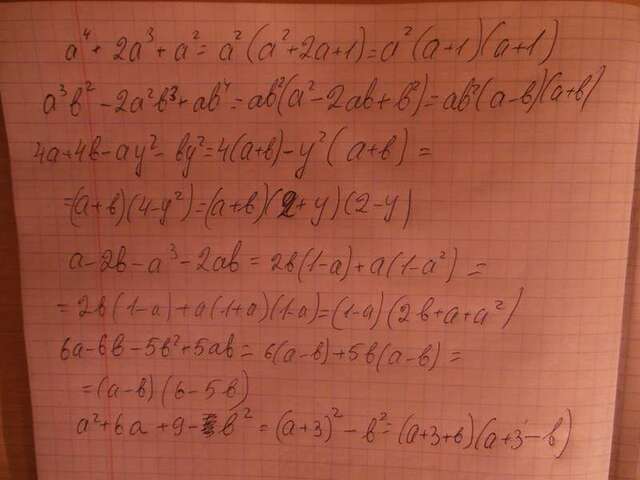 a⁴ + 2a³ + a² = a²(a² + 2a + 1) = a²(a+1)(a+1)
a³b² - 2a²b³ + ab⁴ = ab²(a² - 2ab + b²) = ab²(a-b)(a+b)
4a + 4b - ay² - by² = 4(a+b) - y²(a+b) =
= (a+b)(4-y²) = (a+b)(2+y)(2-y)
a - 2b - a³ - 2ab = 2b(1-a) + a(1-a²) =
= 2b(1-a) + a(1+a)(1-a) = (1-a)(2b+a+a²)
6a - 6b - 5b² + 5ab = 6(a-b) + 5b(a-b) =
= (a-b)(6-5b)
a² + 6a + 9 - b² = (a+3)² - b² = (a+3+b)(a+3-b)